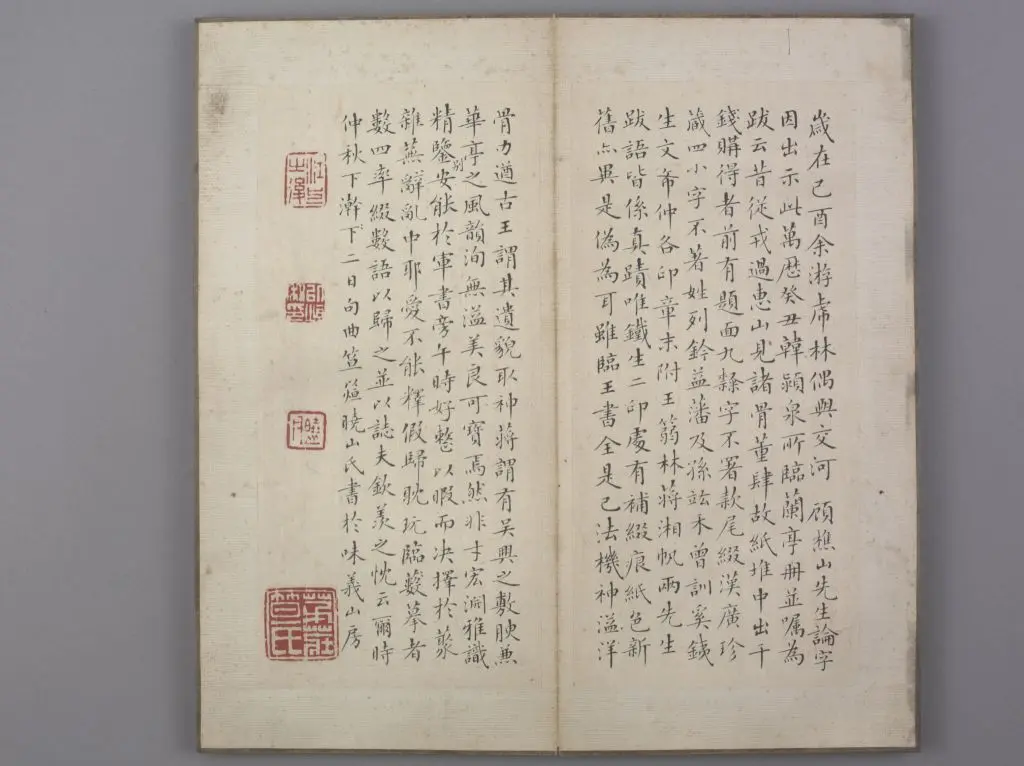 歲在己酉余游虎林偶與交河 顧樵山先生論字
因出示此萬歷癸丑韓潁泉所臨蘭亭冊並嘱為
跋云昔從戎過惠山見諸骨董肆故紙堆中出千
錢購得者前有題面九隸字不署款尾綴漢廣珍
藏四小字不著姓列鈐益藩及孫竑禾曾訓奚銕
生文喬仲各印章末附王篛林蔣湘帆兩先生
跋語皆係真蹟唯鐵生二印處有補綴痕紙色新
舊亦異是偽為耳雖臨王書全是己法機神溢洋
骨力遒古王謂其遺貌取神蔣謂有吳興之敷腴兼
華亭之風韻洵無溢美良可寶焉然非 宏洞雅識
精鑒別安能於軍書旁午時好整以暇而决擇於叢
雜蕪辭亂中耶愛不能釋假歸耽玩臨藂摹者
數四率綴數語以歸之並以誌夫欽羨之忱云爾時
仲秋下澣下二日句曲笪 曉山氏書於味義山房
笪氏